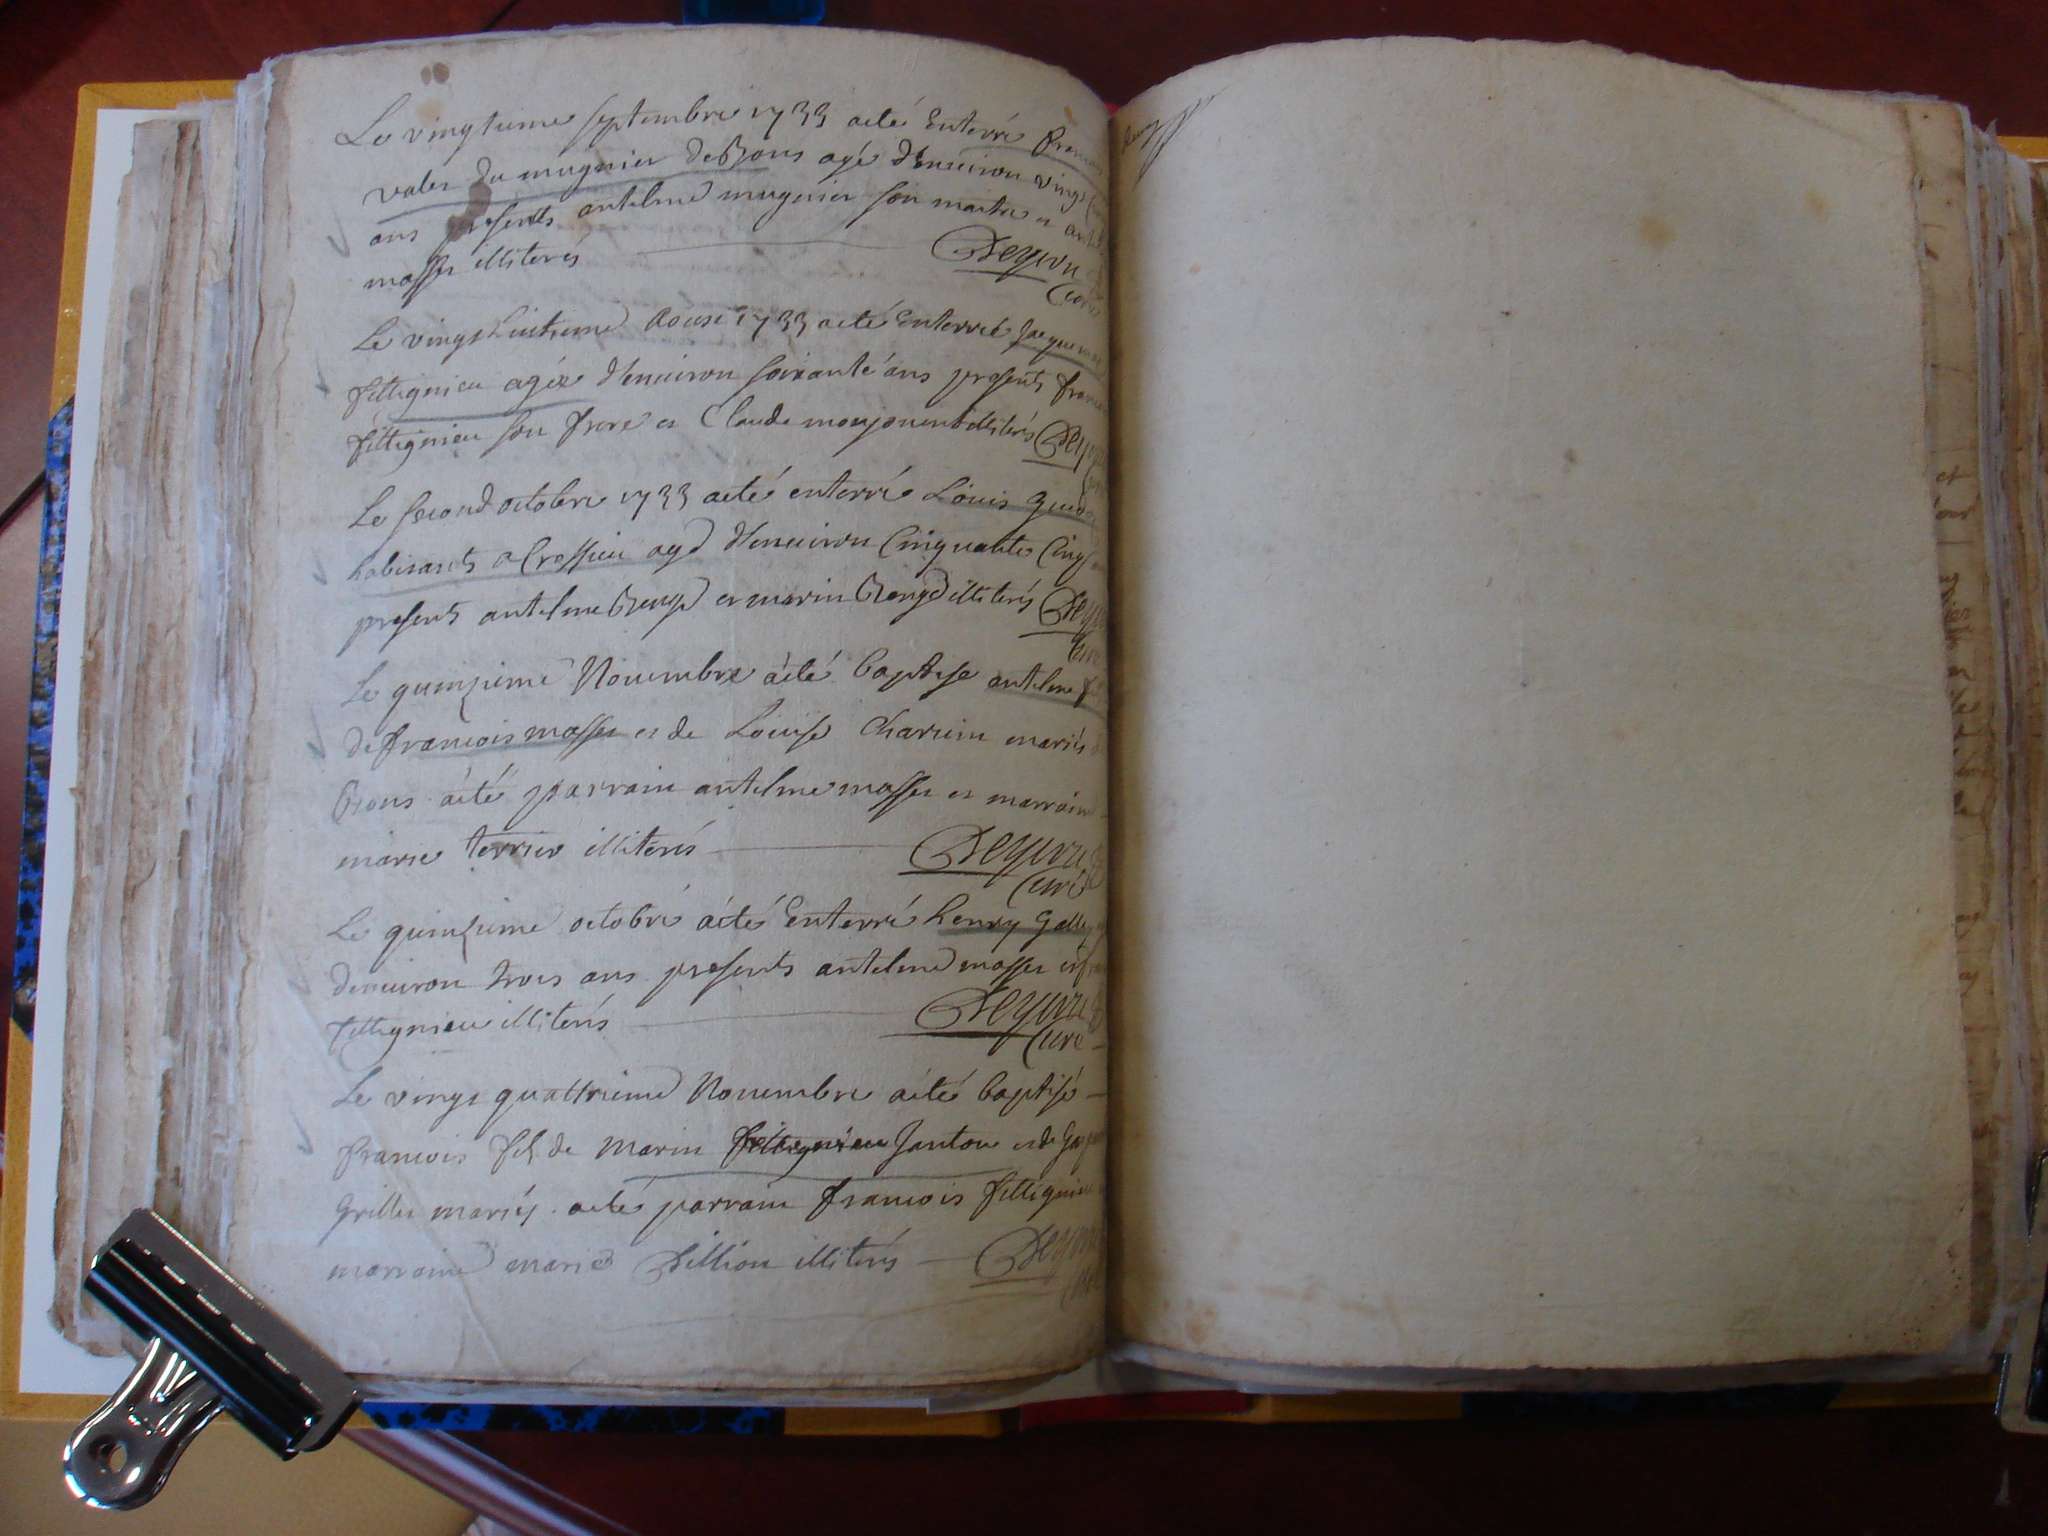 Le vingtieme septembre 1733 aeté Enterré
valer du mugnier de Bons agé d'enuiron vingt
ans presents antelme mugnier son maitre et
masses illiterés Deyuru
Curé
Le vingt huitieme Aoust 1733 aeté Enterrée Jaquema
fittignieu agée d'enuiron soixante ans presents francois
fittignieu son frere et Claude monjonent illiterés Deyuru
Le second octobre 1733 aeté enterré Louis
habitants a Cressieu agé d'enuiron Cinquante Cinq
presents antelme Beugd et marin Beugd illiterés Deyuru
Curé
Le quinzieme Nouembre aété baptisé antelme fils
de francois masses et de Louise Charuin mariés
Bons aété parrain antelme masses et marraine
marie terrier illiterés Deyuru
Curé
Le quinzieme octobre aété Enterré henry Galley
denuiron trois ans presents antelme masses et
fittignieu illiterés Deyuru
Curé
Le vingt quattrieme Nouembre aété baptisé
francois fils de marin fittignieu Janton et de
Grillet mariés aeté parrain francois fittignieu
marraine marie Dillion illiterés Deyuru